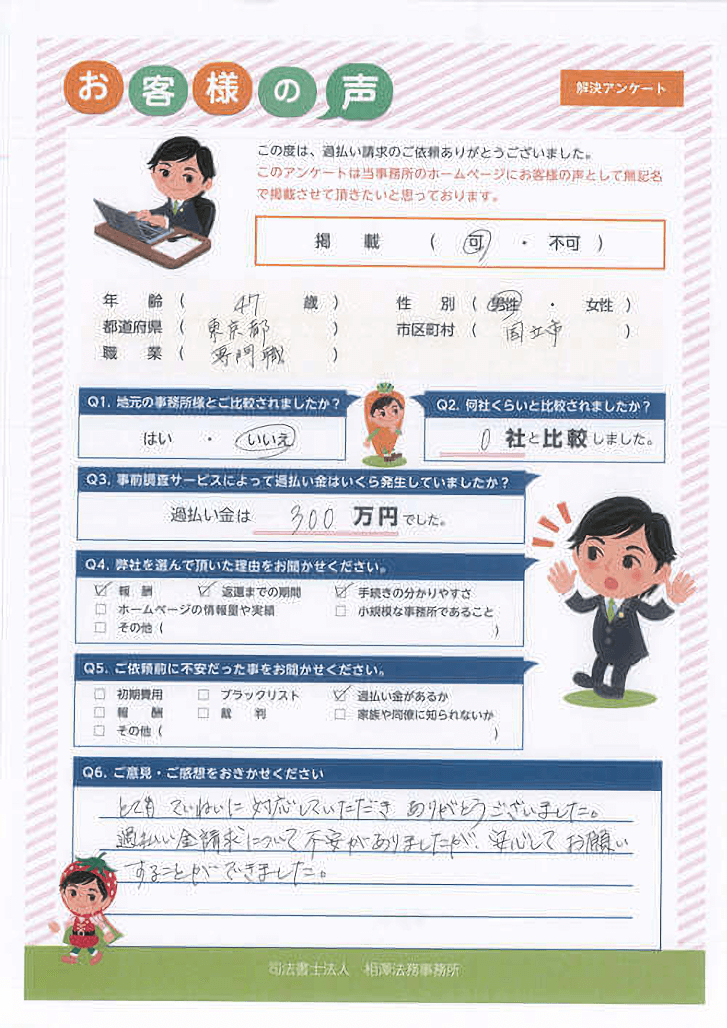 お客様の声
解決アンケート
この度は、過払い請求のご依頼ありがとうございました。
このアンケートは当事務所のホームページにお客様の声として無記名
で掲載させて頂きたいと思っております。
掲 載 ( 可 ・ 不可 )
年 齢 ( 47 歳 ) 性 別 ( 男性 ・ 女性 )
都道府県 ( 東京都 ) 市区町村 ( 国立市 )
職 業 ( 専門職 )
Q1. 地元の事務所様とご比較されましたか? Q2. 何社くらいと比較されましたか?
はい ・ いいえ 0 社と比較しました。
Q3. 事前調査サービスによって過払い金はいくら発生していましたか?
過払い金は 300 万円でした。
Q4. 弊社を選んで頂いた理由をお聞かせください。
☑ 報 酬 ☑ 返還までの期間 ☑ 手続きの分かりやすさ
□ ホームページの情報量や実績 □ 小規模な事務所であること
□ その他 ( )
Q5. ご依頼前に不安だった事をお聞かせください。
□ 初期費用 □ ブラックリスト ☑ 過払い金があるか
□ 報 酬 □ 裁 判 □ 家族や同僚に知られないか
□ その他 ( )
Q6. ご意見・ご感想をおきかせください
とても ていねいに 対応していただき ありがとうございました。
過払い金請求について 不安がありましたが、安心して お願い
することが できました。
司法書士法人 相澤法務事務所